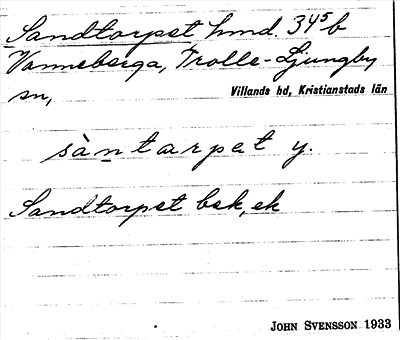 Sandtorpet hmd. 34⁵b
Vanneberga, Trolle-Ljungby
sn, Villands hd, Kristianstads län
sàntarpet y.
Sandtorpet bsk, ek
JOHN SVENSSON 1933